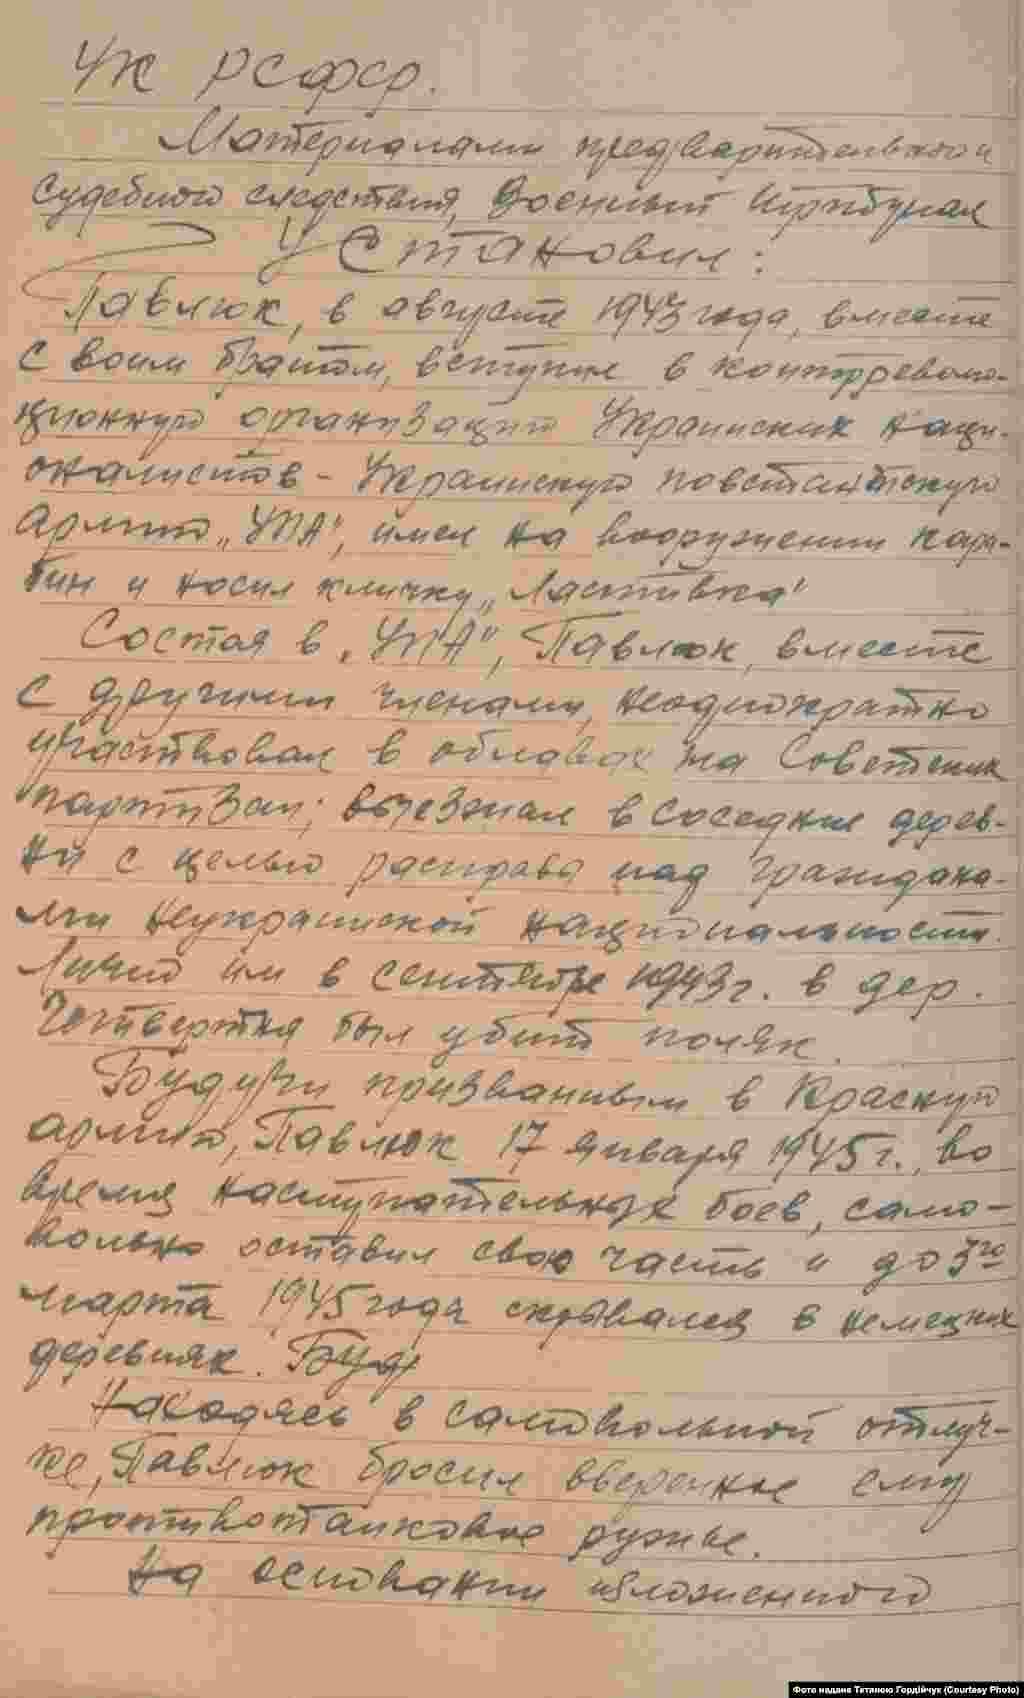 УК РСФСР.
Материалами предварительного и
судебного следствия, Военный трибунал
Установил:
Павлюк, в августе 1943 года, вместе
с своим братом, вступил в контрреволю-
ционную организацию Украинских наци-
оналистов - Украинскую повстанческую
армию „УПА", имел на вооружении кара-
бин и носил кличку „Ластивка"
Состоя в „УПА", Павлюк, вместе
с другими членами, неоднократно
участвовал в облавах на Советских
партизан; выезжал в соседние дерев-
ни с целью расправы над граждана-
ми неукраинской национальности.
Лично им в сентябре 1943 г. в дер.
Четвертня был убит поляк.
Будучи призванным в Красную
армию, Павлюк 17 января 1945 г., во
время наступательных боев, само-
вольно оставил свою часть и до 3го
марта 1945 года скрывался в немецких
деревнях. Буд
Находясь в самовольной отлуч-
ке, Павлюк бросил вверенное ему
противотанковое ружье.
На основании изложенного
Фото надане Тетяною Гордійчук (Courtesy Photo)